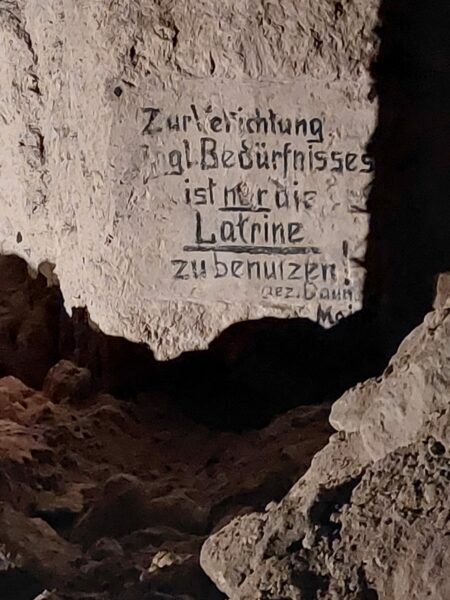 Zur Verichtung
jgl. Bedürfnisses
ist nur die
Latrine
zu benutzen!
gez. Daun
Maj